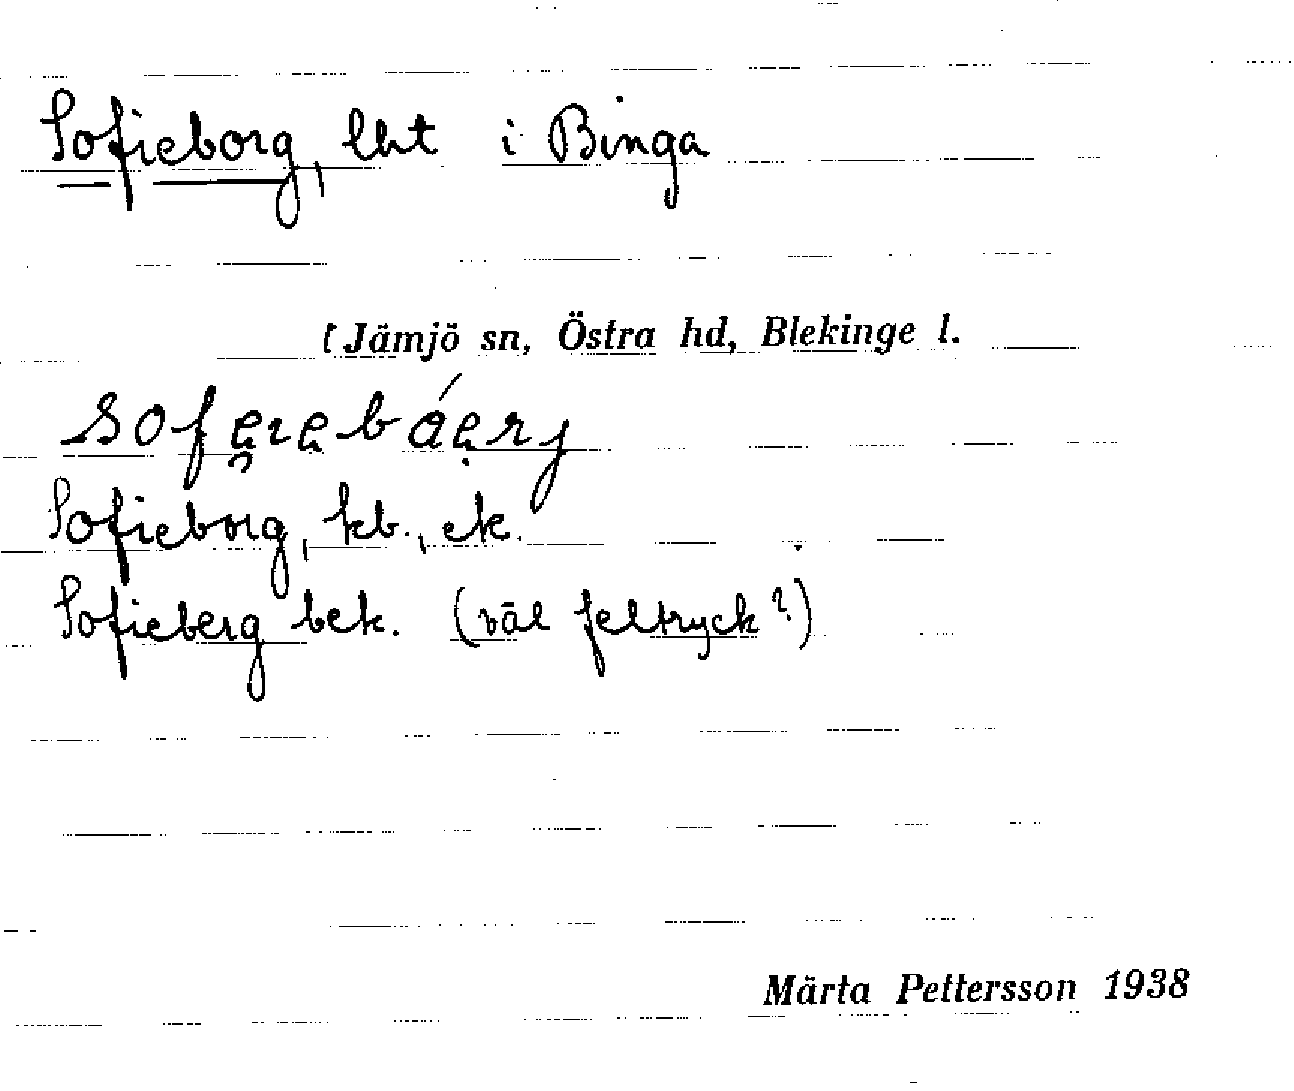 Sofieborg, lht i Binga
Jämjö sn, Östra hd, Blekinge l.
Sofieborg, kb., ek.
Sofieberg bek. (väl feltryck?)
Märta Pettersson 1938